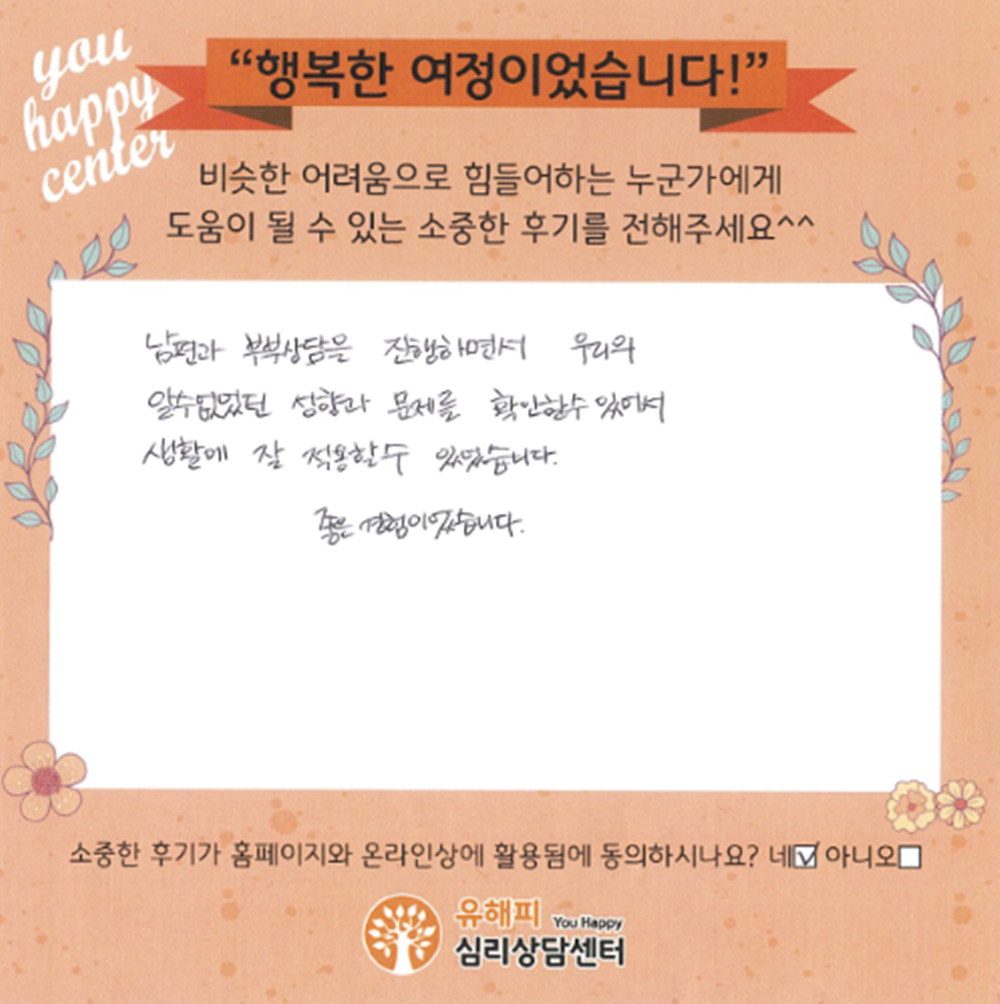 you
happy
center
“행복한 여정이었습니다!”
비슷한 어려움으로 힘들어하는 누군가에게
도움이 될 수 있는 소중한 후기를 전해주세요^^
남편과 부부상담을 진행하면서 우리의
알수없었던 성향과 문제를 확인할수 있어서
생활에 잘 적용할수 있었습니다.
좋은 경험이었습니다.
소중한 후기가 홈페이지와 온라인상에 활용됨에 동의하시나요? 네☑ 아니오☐
유해피 You Happy
심리상담센터